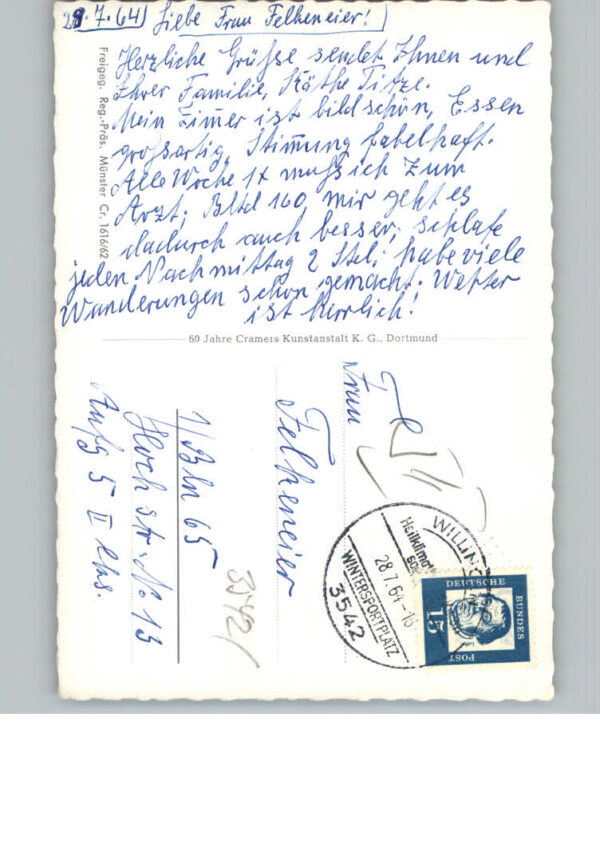 28.7.64) Liebe Frau Felheneier!
Herzliche Grüße sendet Ihnen und
Ihrer Familie, Käthe Titze.
Mein Zimer ist bildschön, Essen
großartig, Stimung fabelhaft.
Alle Woche 1x muß ich zum
Arzt; Bltd 160, mir geht es
dadurch auch besser; schlafe
jeden Nachmittag 2 Std; habe viele
Wanderungen schon gemacht. Wetter
ist herrlich!
Freigeg. Reg.-Präs. Münster Cr. 1616/62
60 Jahre Cramers Kunstanstalt K. G., Dortmund
Frau
Felheneier
1/Bln 65
Hochstr. No 13
Aufg 5 II lks.
3542/
WILLING
Heilklimat
28.7.64-15
WINTERSPORTPLATZ
3542
DEUTSCHE
BUNDES
POST
15